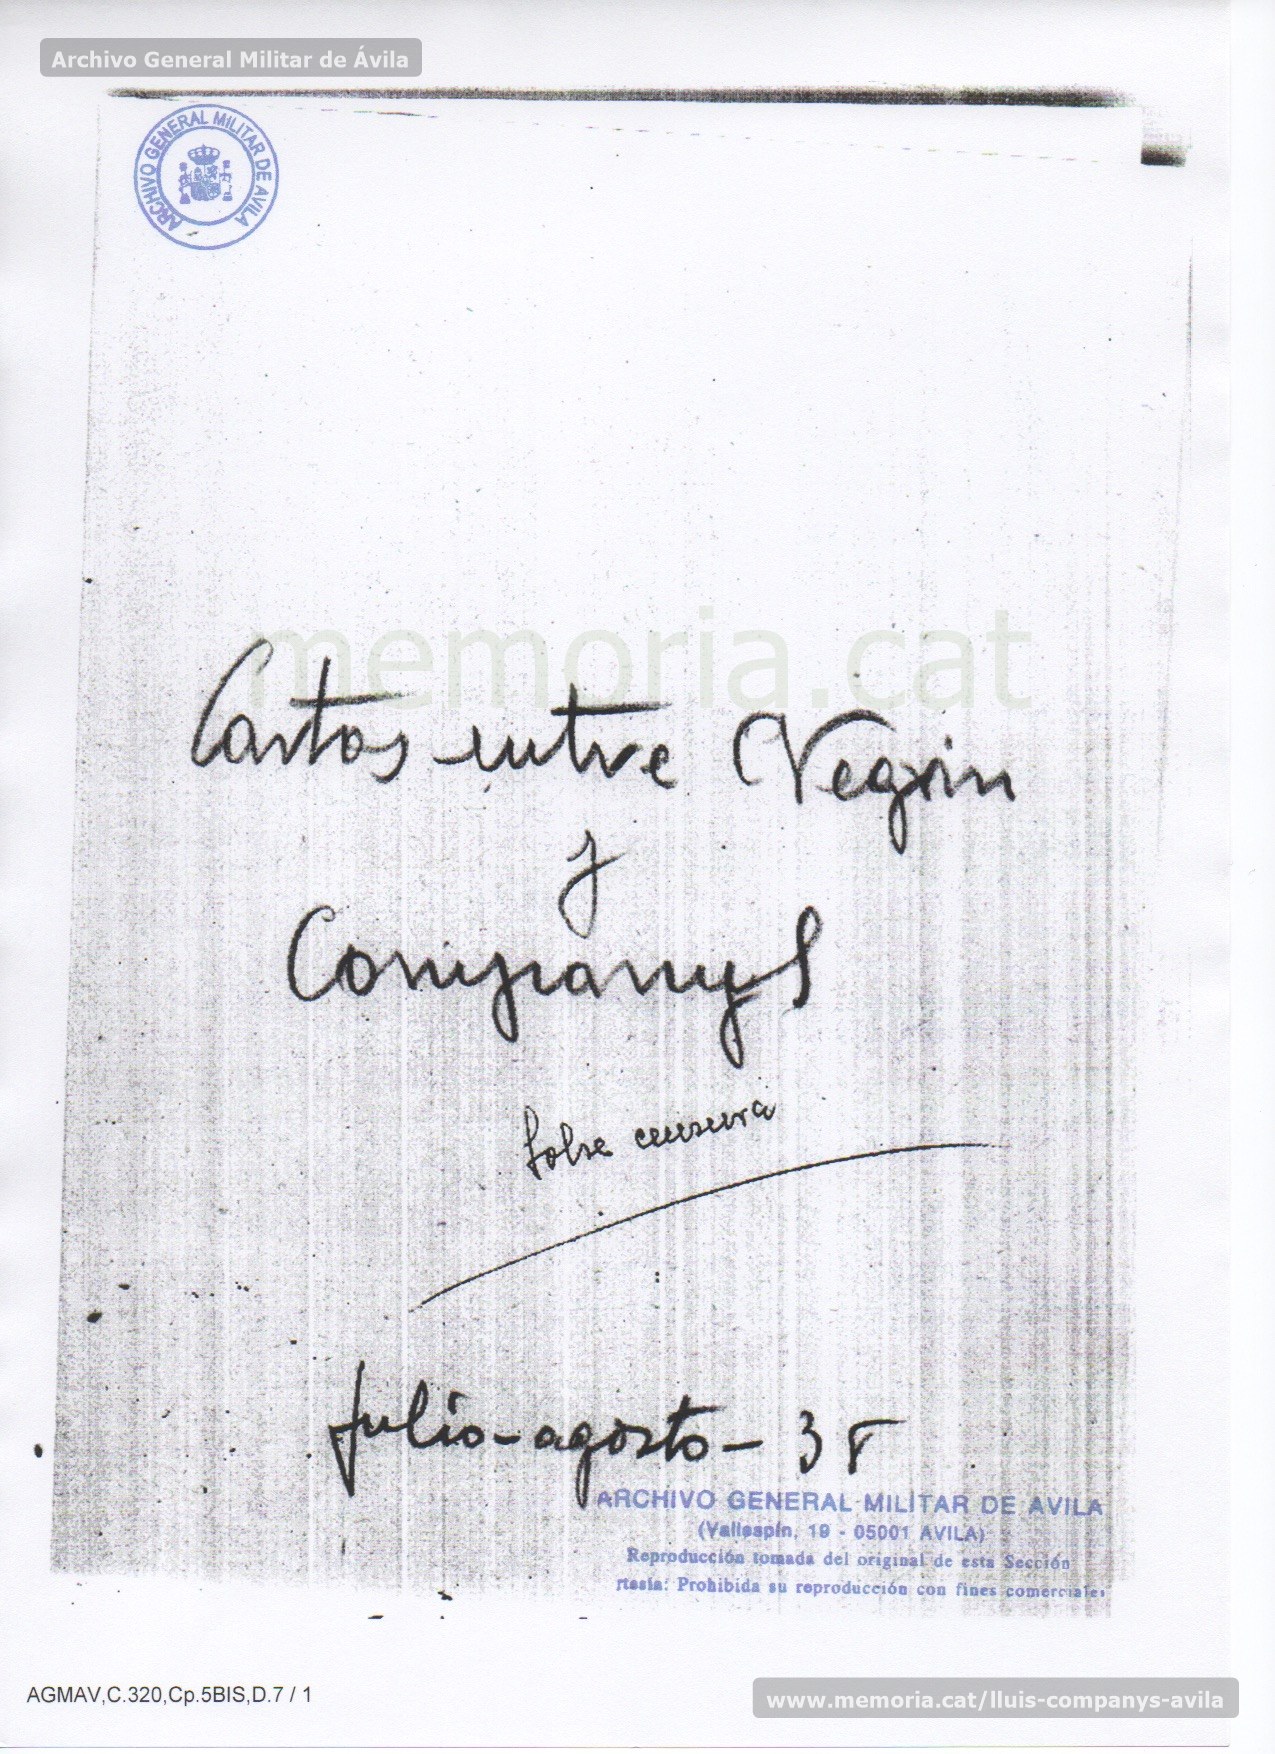 Archivo General Militar de Ávila
ARCHIVO GENERAL MILITAR DE AVILA
memoria.cat
Cartas entre Negrin
y
Companys
Sobre censura
Julio-agosto-38
ARCHIVO GENERAL MILITAR DE AVILA
(Vallespín, 19 - 05001 AVILA)
Reproducción tomada del original de esta Sección
rtesía: Prohibida su reproducción con fines comerciales
AGMAV,C.320,Cp.5BIS,D.7 / 1
www.memoria.cat/lluis-companys-avila